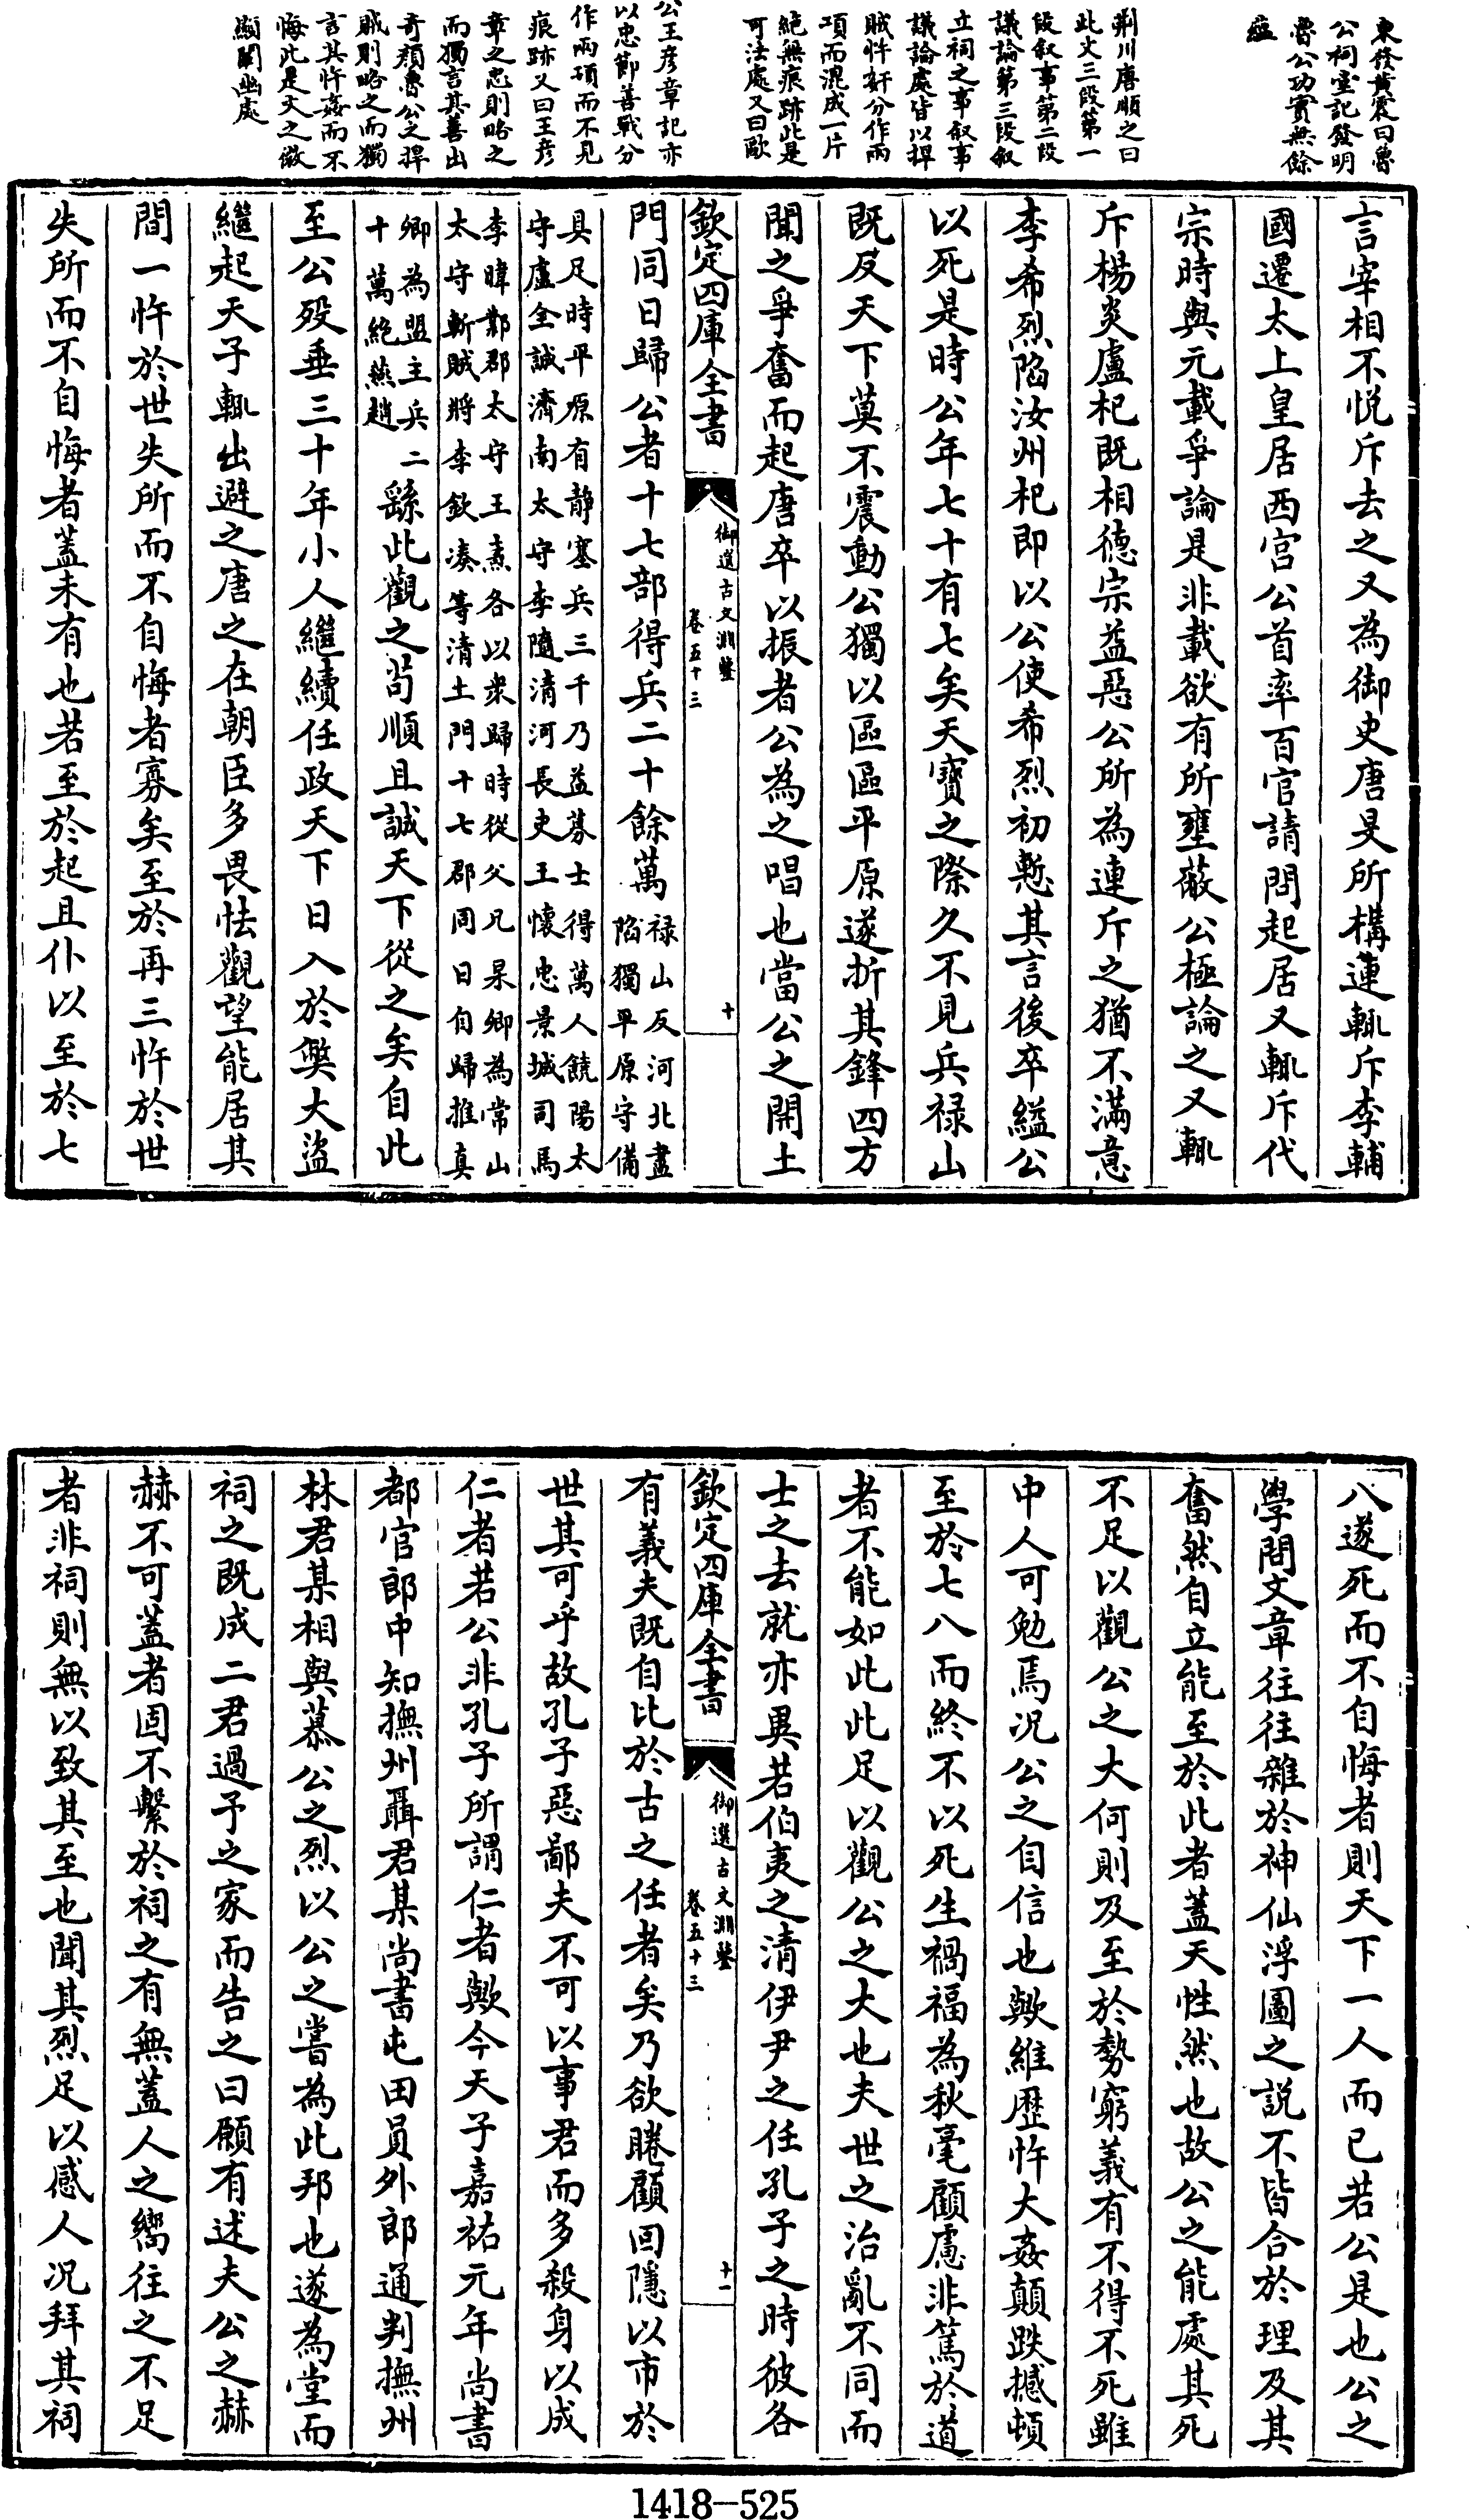 東發黃震曰魯
公祠堂記發明
魯公功實無餘
蘊
荆川唐順之曰
此文三段第一
段叙事第二段
議論第三段叙
立祠之事叙事
議論處皆以捍
賊忤奸分作兩
項而混成一片
絕無痕跡此是
可法處又曰歐
公王彦章記亦
以忠節善戰分
作兩項而不見
痕跡又曰王彦
章之忠則略之
而獨言其善出
奇顏魯公之捍
賊則略之而獨
言其忤姦而不
悔此是文之微
顯闡幽處
言宰相不悦斥去之又為御史唐旻所構連輒斥李輔
國遷太上皇居西宫公首率百官請問起居又輒斥代
宗時與元載爭論是非載欲有所壅蔽公極論之又輒
斥楊炎盧杞既相德宗益惡公所為連斥之猶不滿意
李希烈陷汝州杞即以公使希烈初慙其言後卒縊公
以死是時公年七十有七矣天寶之際久不見兵禄山
既反天下莫不震動公獨以區區平原遂折其鋒四方
聞之爭奮而起唐卒以振者公為之唱也當公之開土
欽定四庫全書
御選古文淵鑒
卷五十三
十
門同日歸公者十七部得兵二十餘萬
禄山反河北盡
陷獨平原守備
具足時平原有静塞兵三千乃益募士得萬人饒陽太
守盧全誠濟南太守李隨清河長史王懷忠景城司馬
李暐鄴郡太守王燾各以衆歸時從父兄杲卿為常山
太守斬賊將李欽湊等清土門十七郡同日自歸推真
卿為盟主兵二
十萬絶燕趙
繇此觀之苟順且誠天下從之矣自此
至公殁垂三十年小人繼續任政天下日入於弊大盜
繼起天子輒出避之唐之在朝臣多畏怯觀望能居其
間一忤於世失所而不自悔者寡矣至於再三忤於世
失所而不自悔者蓋未有也若至於起且仆以至於七
八遂死而不自悔者則天下一人而已若公是也公之
學問文章往往雜於神仙浮圖之説不皆合於理及其
奮然自立能至於此者蓋天性然也故公之能處其死
不足以觀公之大何則及至於勢窮義有不得不死雖
中人可勉焉况公之自信也歟維歴忤大姦顛跌撼頓
至於七八而終不以死生禍福為秋毫顧慮非篤於道
者不能如此此足以觀公之大也夫世之治亂不同而
士之去就亦異若伯夷之清伊尹之任孔子之時彼各
欽定四庫全書
御選古文淵鑒
卷五十三
十一
有義夫既自比於古之任者矣乃欲睠顧回隱以市於
世其可乎故孔子惡鄙夫不可以事君而多殺身以成
仁者若公非孔子所謂仁者歟今天子嘉祐元年尚書
都官郎中知撫州聶君某尚書屯田員外郎通判撫州
林君某相與慕公之烈以公之嘗為此邦也遂為堂而
祠之既成二君過予之家而告之曰願有述夫公之赫
赫不可蓋者固不繫於祠之有無蓋人之嚮往之不足
者非祠則無以致其至也聞其烈足以感人况拜其祠
1418-525